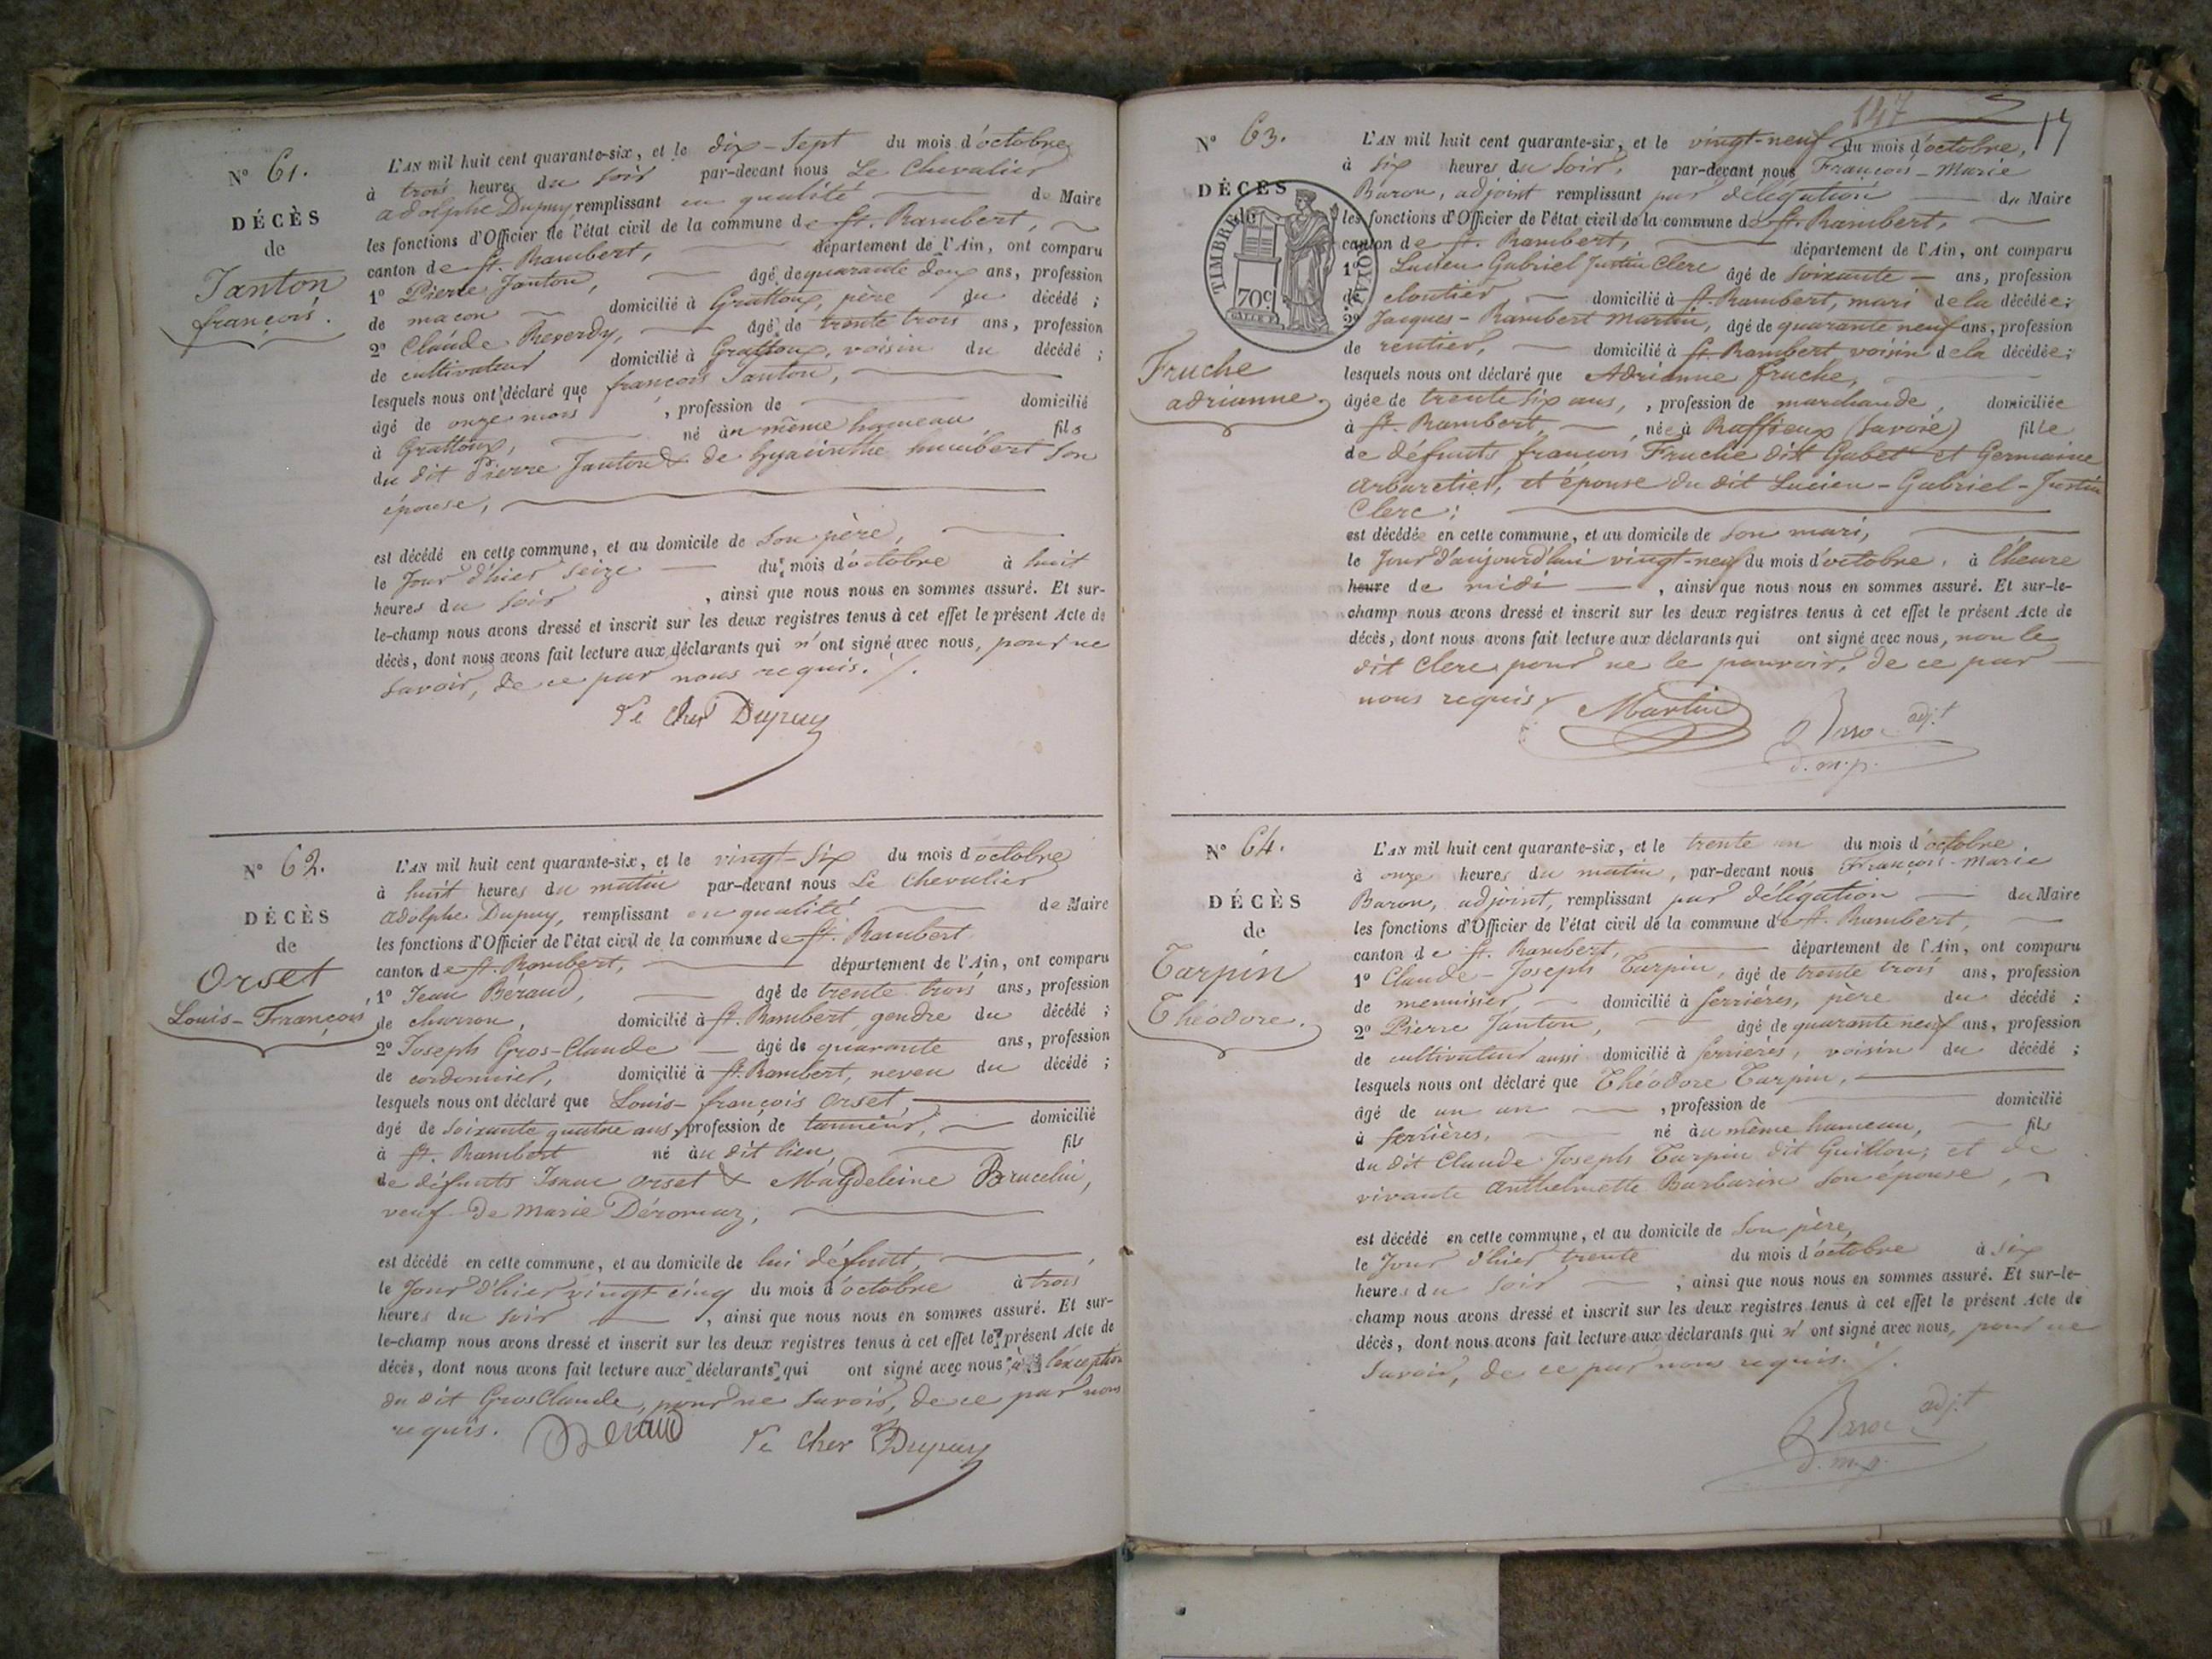 N° 61.
DÉCÈS
de
Janton
françois.
L'AN mil huit cent quarante-six, et le dix-sept du mois d'octobre
à trois heures du soir par-devant nous Le Chevalier
adolphe Dupuy, remplissant en qualité de Maire
les fonctions d'Officier de l'état civil de la commune de St. Rambert,
canton de St. Rambert, département de l'Ain, ont comparu
1° Pierre Janton, âgé de quarante deux ans, profession
de maçon domicilié à Grattoux, père du décédé ;
2° Claude Reverdy, âgé de trente trois ans, profession
de cultivateur domicilié à Grattoux, voisin du décédé ;
lesquels nous ont déclaré que françois Janton,
âgé de onze mois , profession de domicilié
à Grattoux, né au même hameau fils
du dit Pierre Janton & de hyacinthe humbert son
épouse,
est décédé en cette commune, et au domicile de son père,
le Jour d'hier seize du mois d'octobre à huit
heures du soir , ainsi que nous nous en sommes assuré. Et sur-
le-champ nous avons dressé et inscrit sur les deux registres tenus à cet effet le présent Acte de
décès, dont nous avons fait lecture aux déclarants qui n'ont signé avec nous, pour ne
savoir, de ce par nous requis. /.
le Cher Dupuy
N° 62.
DÉCÈS
de
Orset
Louis-François
L'AN mil huit cent quarante-six, et le vingt-six du mois d'octobre
à huit heures du matin par-devant nous Le Chevalier
adolphe Dupuy, remplissant en qualité de Maire
les fonctions d'Officier de l'état civil de la commune de St. Rambert
canton de St. Rambert, département de l'Ain, ont comparu
1° Jean Beraud, âgé de trente trois ans, profession
de charron, domicilié à St. Rambert, gendre du décédé ;
2° Joseph Gros-Claude âgé de quarante ans, profession
de cordonnier, domicilié à St. Rambert, neveu du décédé ;
lesquels nous ont déclaré que Louis-françois Orset
âgé de soixante quatre ans, profession de tanneur, domicilié
à St. Rambert né au dit lieu, fils
de défunts Isaac Orset & Magdeleine Brucelin,
veuf de Marie Déromaz,
est décédé en cette commune, et au domicile de lui défunt,
le Jour d'hier vingt cinq du mois d'octobre à trois
heures du soir , ainsi que nous nous en sommes assuré. Et sur-
le-champ nous avons dressé et inscrit sur les deux registres tenus à cet effet le présent Acte de
décès, dont nous avons fait lecture aux déclarants qui ont signé avec nous, à l'exception
du dit Gros Claude, pour ne savoir, de ce par nous
requis. Beraud le Cher Dupuy
147
17
N° 63.
DÉCÈS
de
TIMBRE ROYAL
70c
Fruche
adrianne.
L'AN mil huit cent quarante-six, et le vingt-neuf du mois d'octobre,
à six heures du soir, par-devant nous François-Marie
Baron, adjoint remplissant par délégation du Maire
les fonctions d'Officier de l'état civil de la commune de St. Rambert,
canton de St. Rambert, département de l'Ain, ont comparu
1° Lucien Gabriel Justin Clerc âgé de soixante ans, profession
de cloutier domicilié à St. Rambert, mari de la décédée ;
2° Jacques-Rambert Martin, âgé de quarante neuf ans, profession
de rentier, domicilié à St. Rambert voisin de la décédée ;
lesquels nous ont déclaré que Adrianne fruche,
âgée de trente six ans, , profession de marchande, domiciliée
à St. Rambert, née à Ruffieux (Savoie) fille
de défunts françois Fruche dit Gabet et Germaine
Arbaretier, et épouse du dit Lucien-Gabriel-Justin
Clerc ;
est décédée en cette commune, et au domicile de son mari,
le Jour d'aujourd'hui vingt-neuf du mois d'octobre, à l'heure
heure de midi , ainsi que nous nous en sommes assuré. Et sur-le-
champ nous avons dressé et inscrit sur les deux registres tenus à cet effet le présent Acte de
décès, dont nous avons fait lecture aux déclarants qui ont signé avec nous, non le
dit Clerc pour ne le pouvoir, de ce par
nous requis Martin Baron adj.t
d. m. p.
N° 64.
DÉCÈS
de
Tarpin
Théodore.
L'AN mil huit cent quarante-six, et le trente un du mois d'octobre,
à onze heures du matin, par-devant nous François-Marie
Baron, adjoint, remplissant par délégation du Maire
les fonctions d'Officier de l'état civil de la commune de St. Rambert,
canton de St. Rambert, département de l'Ain, ont comparu
1° Claude-Joseph Tarpin, âgé de trente trois ans, profession
de menuisier, domicilié à serrières, père du décédé ;
2° Pierre Janton, âgé de quarante neuf ans, profession
de cultivateur aussi domicilié à serrières, voisin du décédé ;
lesquels nous ont déclaré que Théodore Tarpin,
âgé de un an , profession de domicilié
à serrières, né au même hameau, fils
du dit Claude Joseph Tarpin dit Guillon, et de
vivante Anthelmette Barbarin son épouse,
est décédé en cette commune, et au domicile de son père,
le Jour d'hier trente du mois d'octobre à six
heures du soir , ainsi que nous nous en sommes assuré. Et sur-le-
champ nous avons dressé et inscrit sur les deux registres tenus à cet effet le présent Acte de
décès, dont nous avons fait lecture aux déclarants qui n'ont signé avec nous, pour ne
savoir, de ce par nous requis. /.
Baron adj.t
d. m. p.